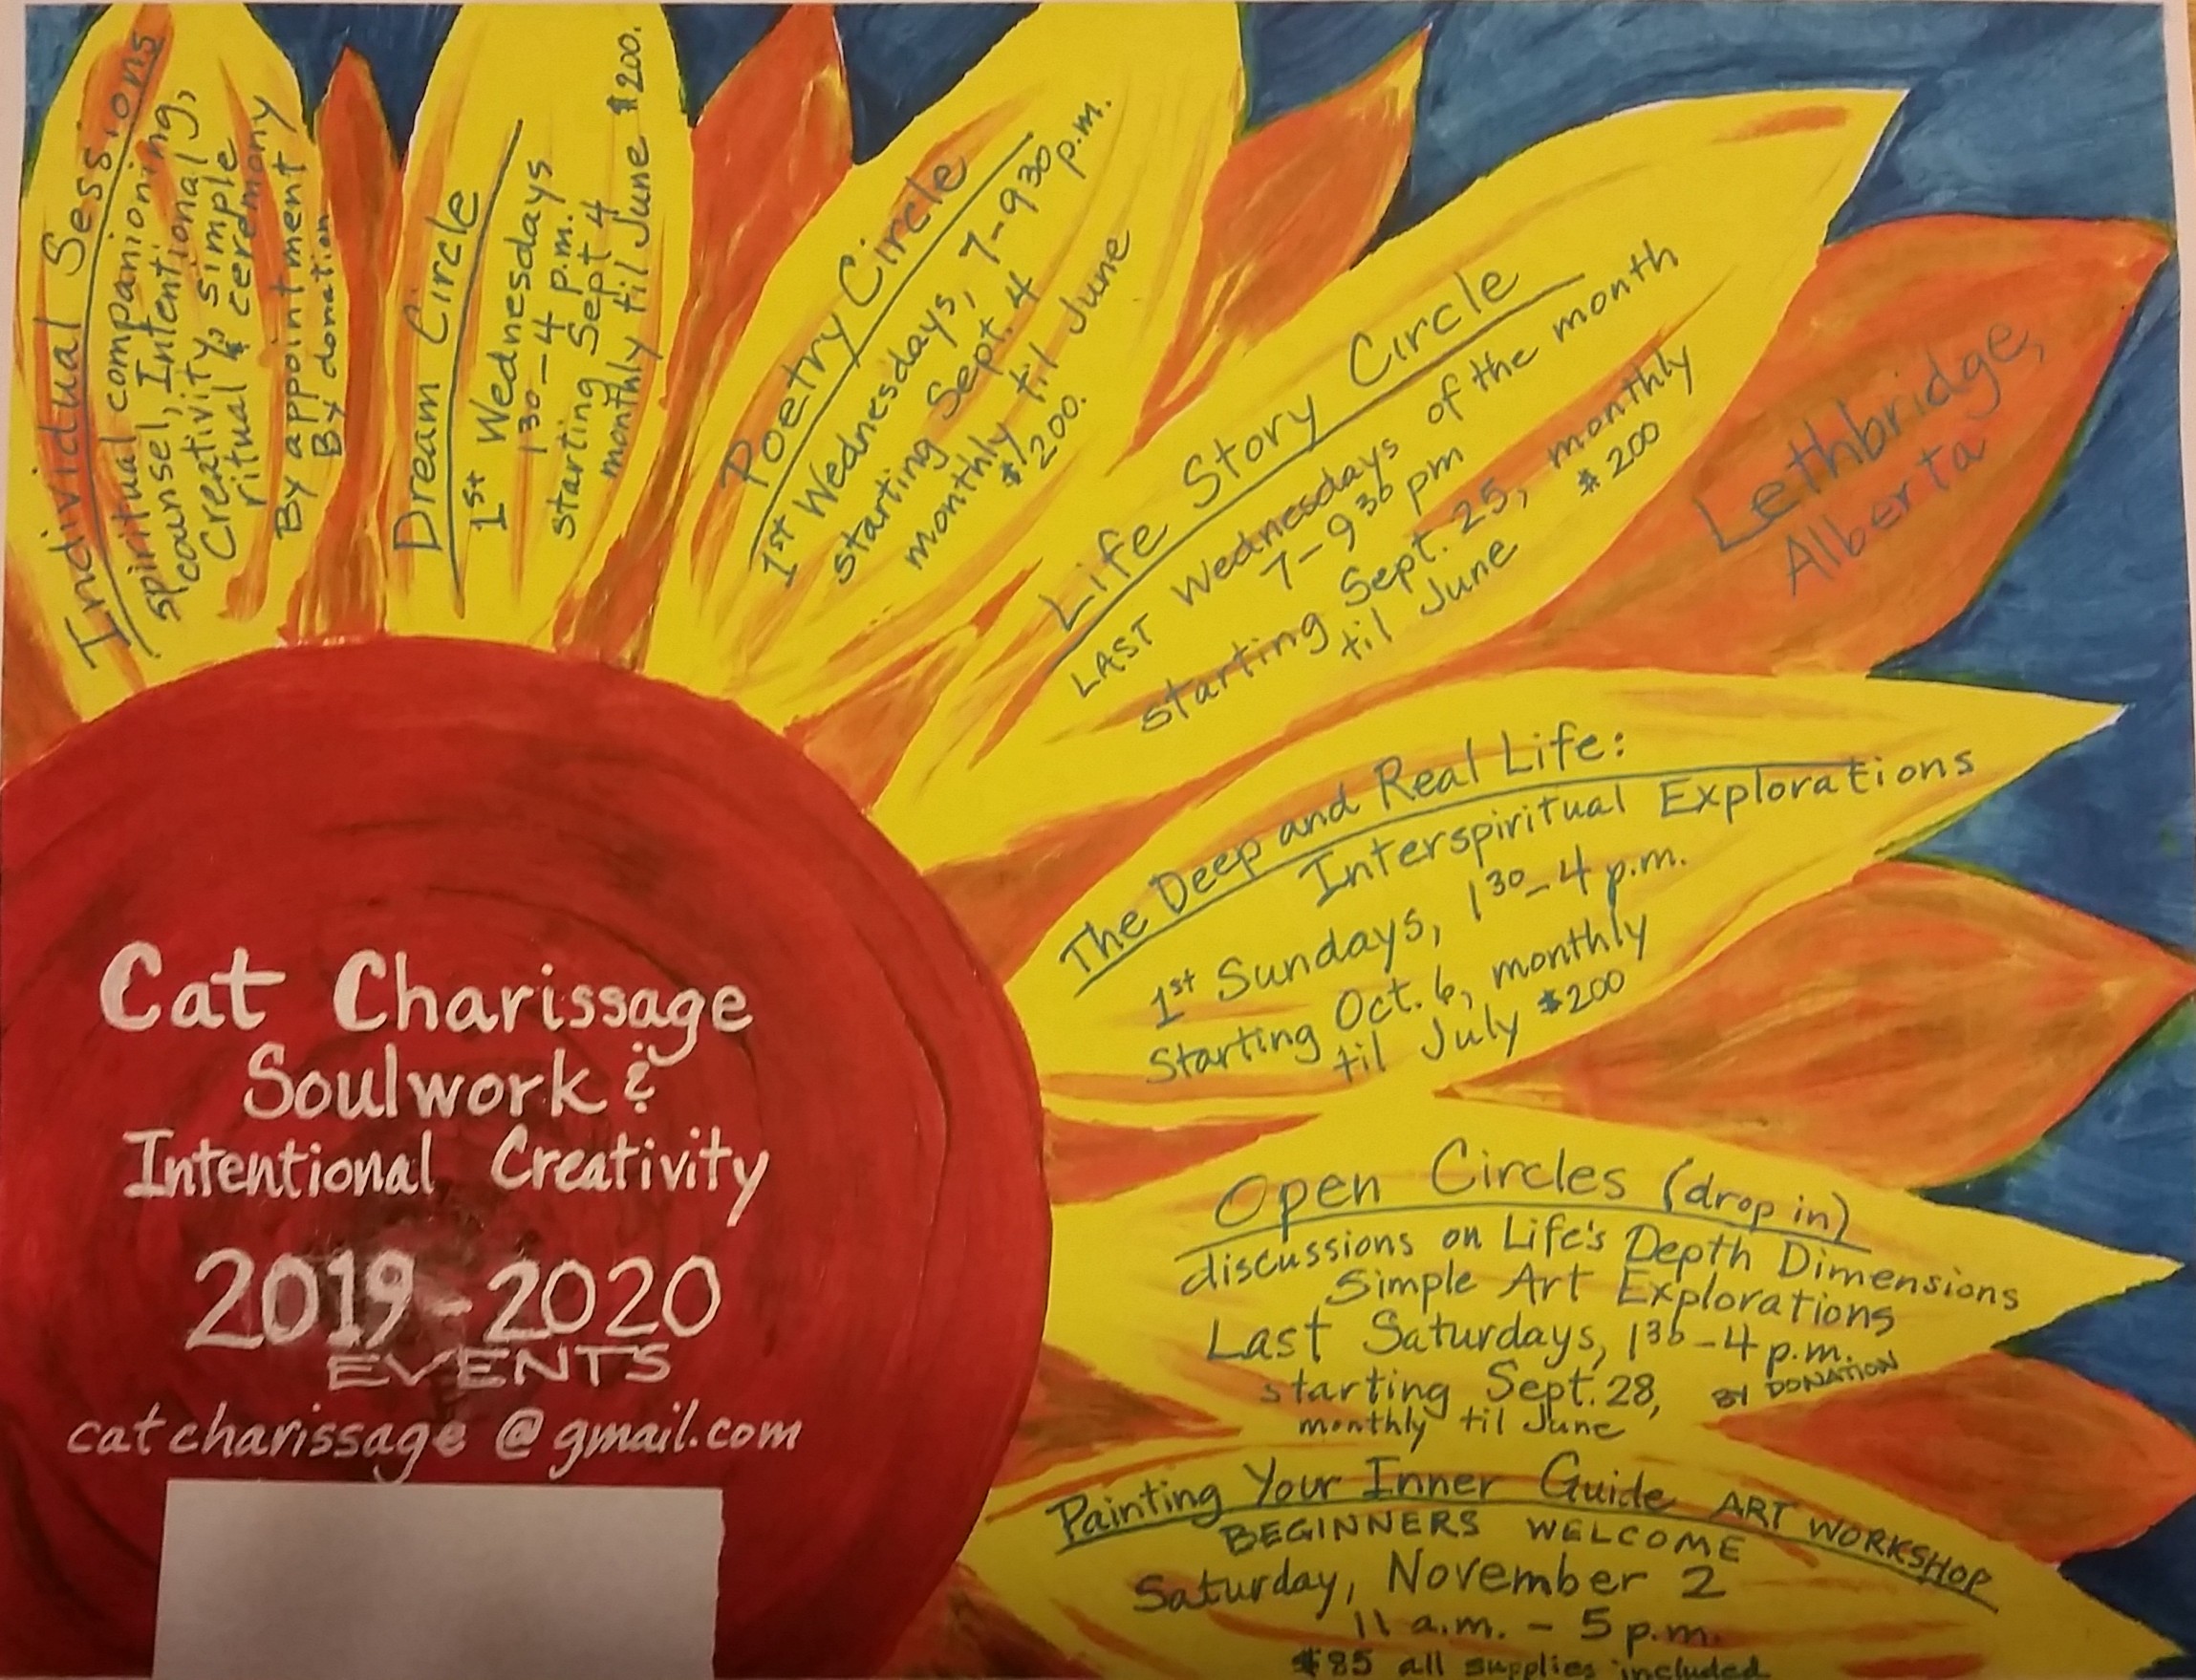 Individual Sessions
spiritual companioning,
counsel, Intentional
Creativity, simple
ritual & ceremony
By appointment
By donation
Dream Circle
1st Wednesdays
130 - 4 p.m.
starting Sept 4
monthly til June $200.
Poetry Circle
1st Wednesdays, 7-930 p.m.
starting Sept. 4
monthly til June
$200.
Life Story Circle
LAST Wednesdays of the month
7-930 pm
starting Sept. 25, monthly
til June $200
Lethbridge,
Alberta
The Deep and Real Life:
Interspiritual Explorations
1st Sundays, 130-4 p.m.
Starting Oct. 6, monthly
til July $200
Open Circles (drop in)
discussions on Life's Depth Dimensions
Simple Art Explorations
Last Saturdays, 130-4 p.m.
starting Sept. 28, BY DONATION
monthly til June
Painting Your Inner Guide ART WORKSHOP
BEGINNERS WELCOME
Saturday, November 2
11 a.m. - 5 p.m.
$85 all supplies included
Cat Charissage
Soulwork &
Intentional Creativity
2019-2020
EVENTS
catcharissage@gmail.com